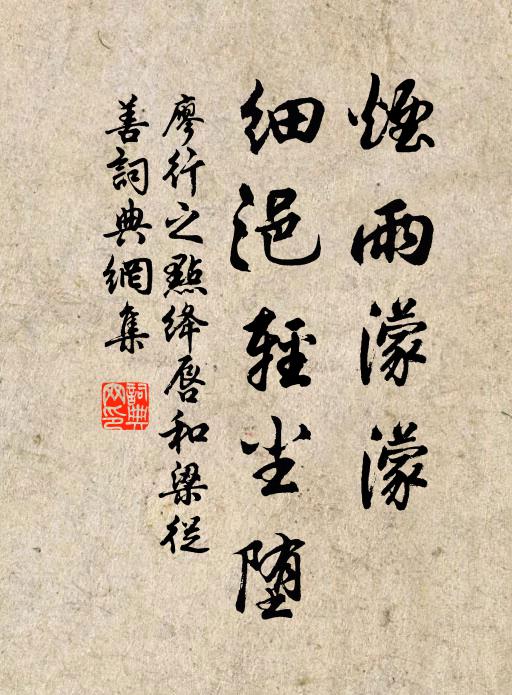 煙雨濛濛
細浥輕尘堕
廖行之點绛唇和梁從
善詞典網集
詞典
网印